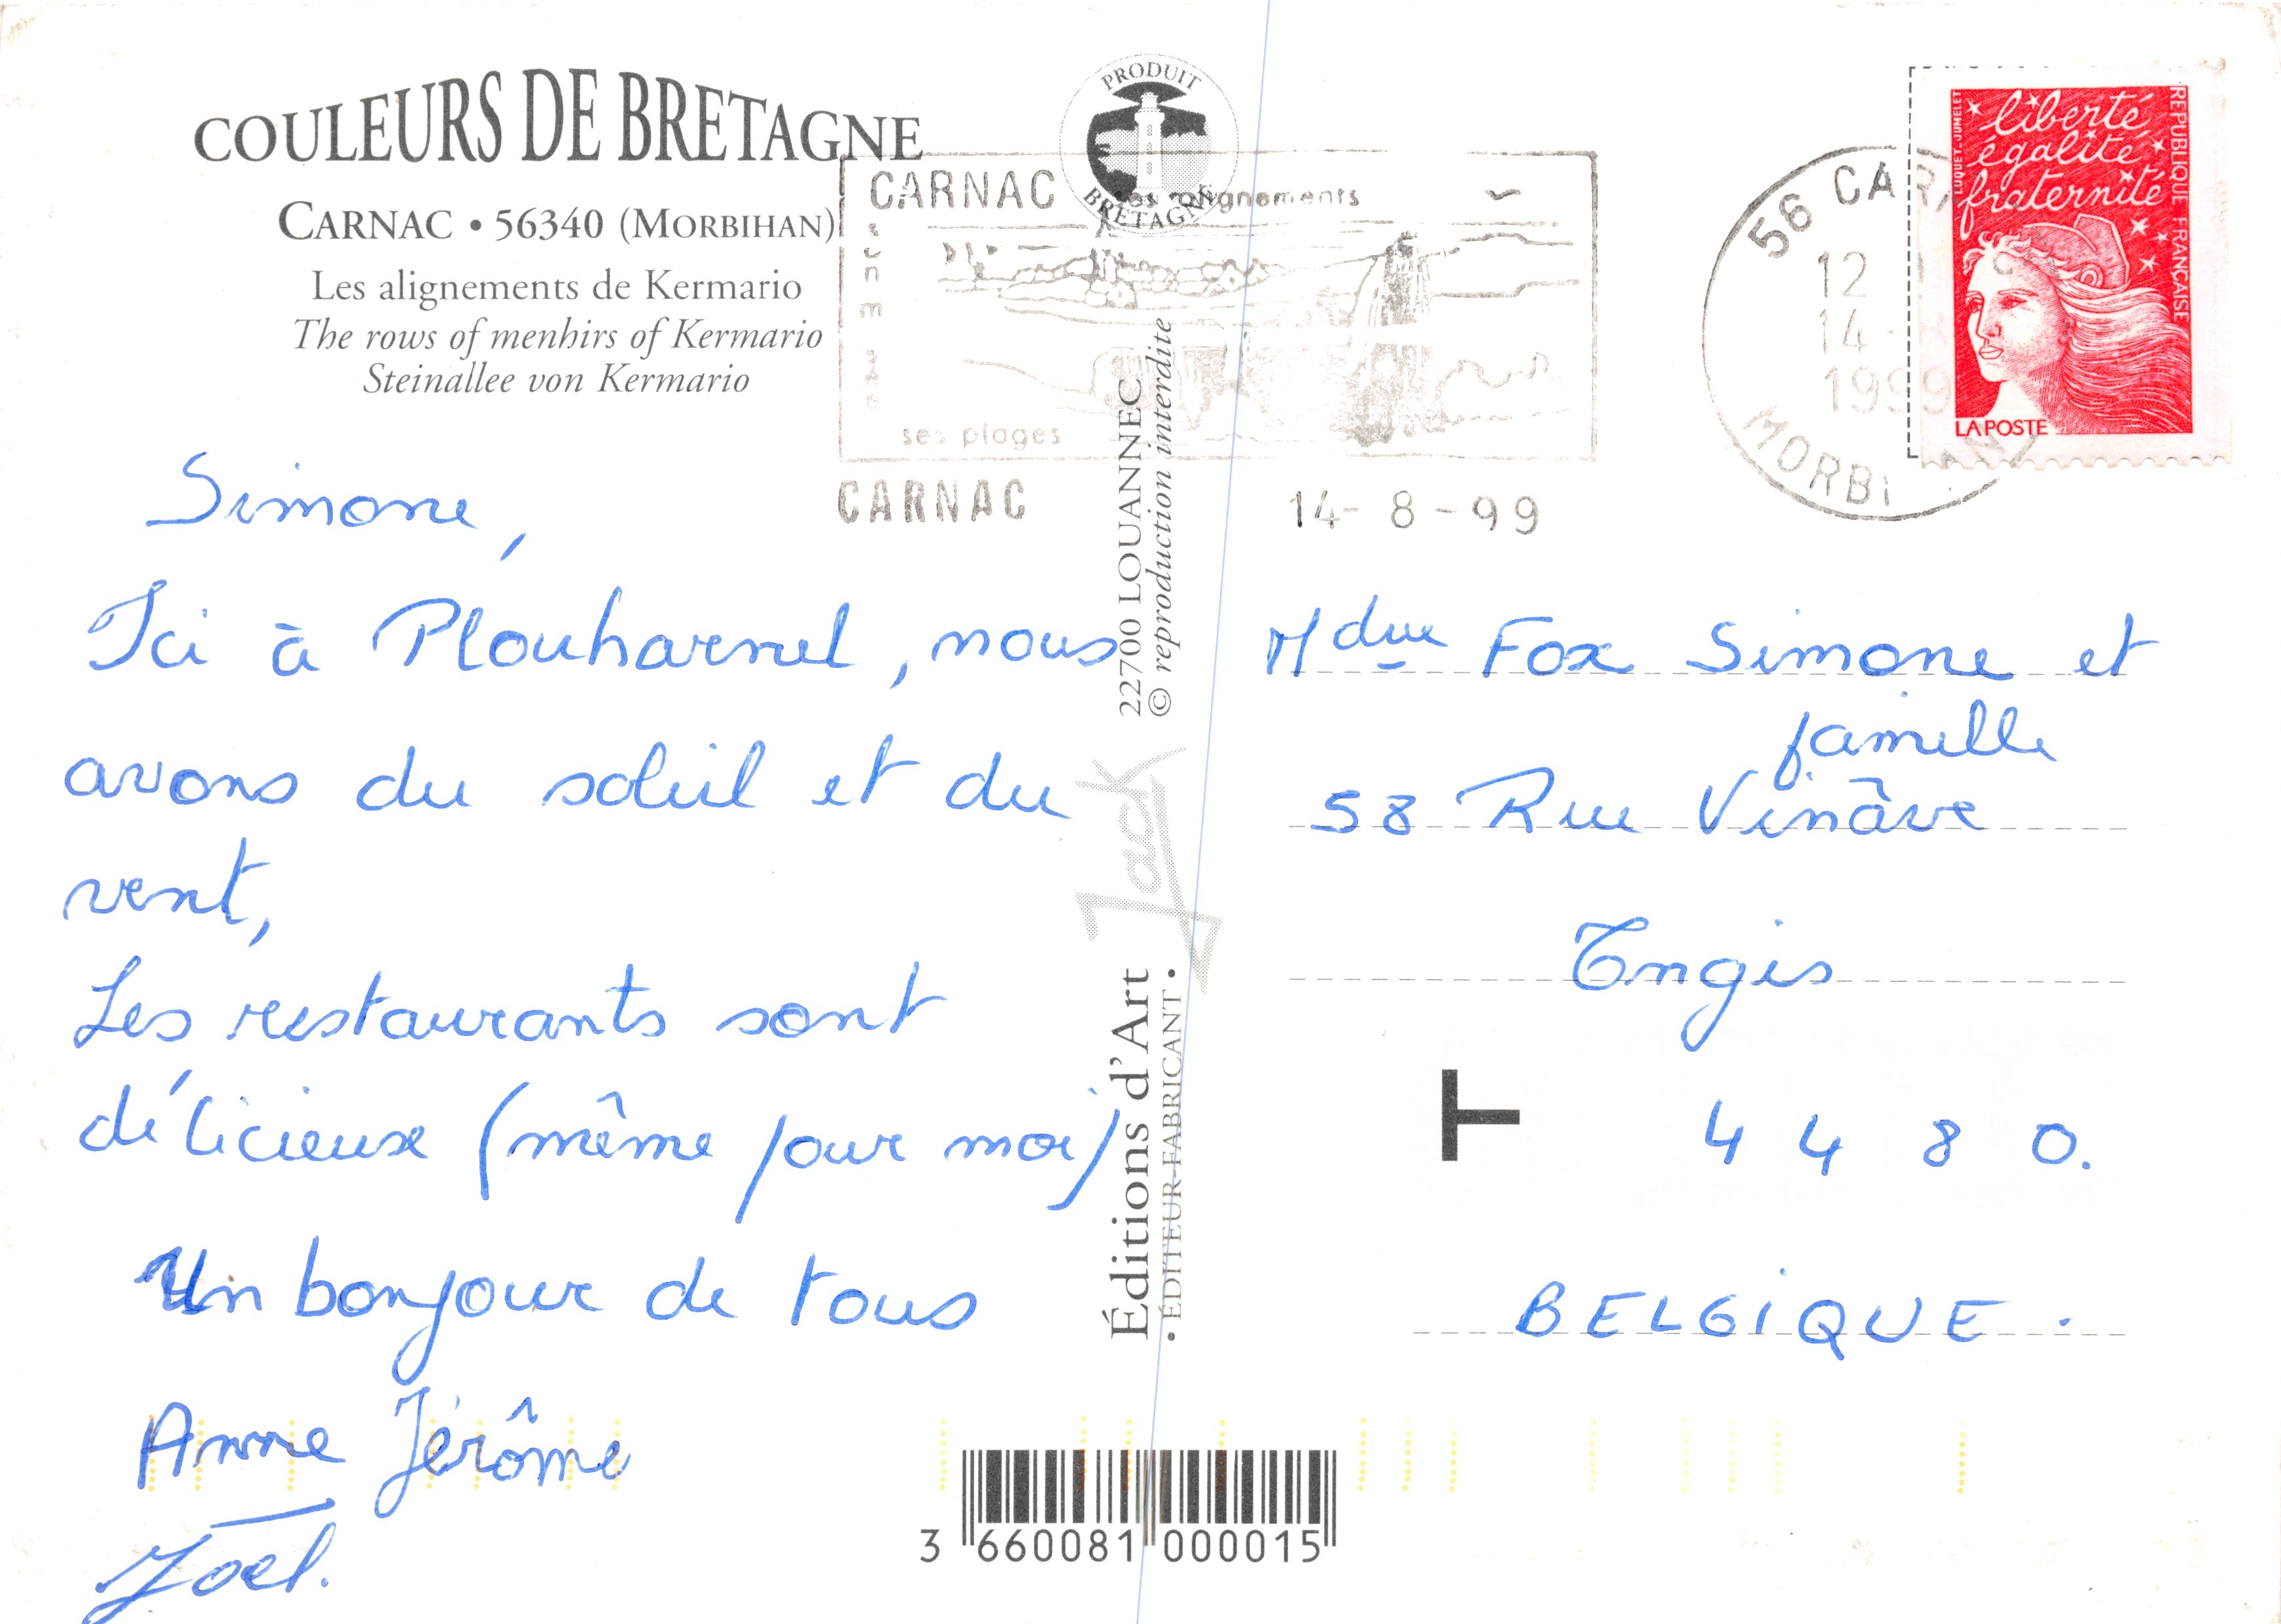 COULEURS DE BRETAGNE
CARNAC • 56340 (MORBIHAN)
Les alignements de Kermario
The rows of menhirs of Kermario
Steinallee von Kermario
PRODUIT
BRETAGNE
CARNAC
ses alignements
ses plages
CARNAC 14-8-99
56 CAR
12
14-
1999
MORBI AN
liberté
égalité
fraternité
REPUBLIQUE FRANÇAISE
LUQUET-JUMELET
LA POSTE
Simone,
Ici à Plouharnel, nous
avons du soleil et du
vent,
Les restaurants sont
délicieux (même pour moi)
Un bonjour de tous
Anne Jérôme
Joël.
22700 LOUANNEC
© reproduction interdite
Jack
Éditions d'Art
• ÉDITEUR-FABRICANT •
Mdme Fox Simone et
famille
58 Rue Vinâve
Engis
T 4 4 8 0.
BELGIQUE.
3 660081 000015